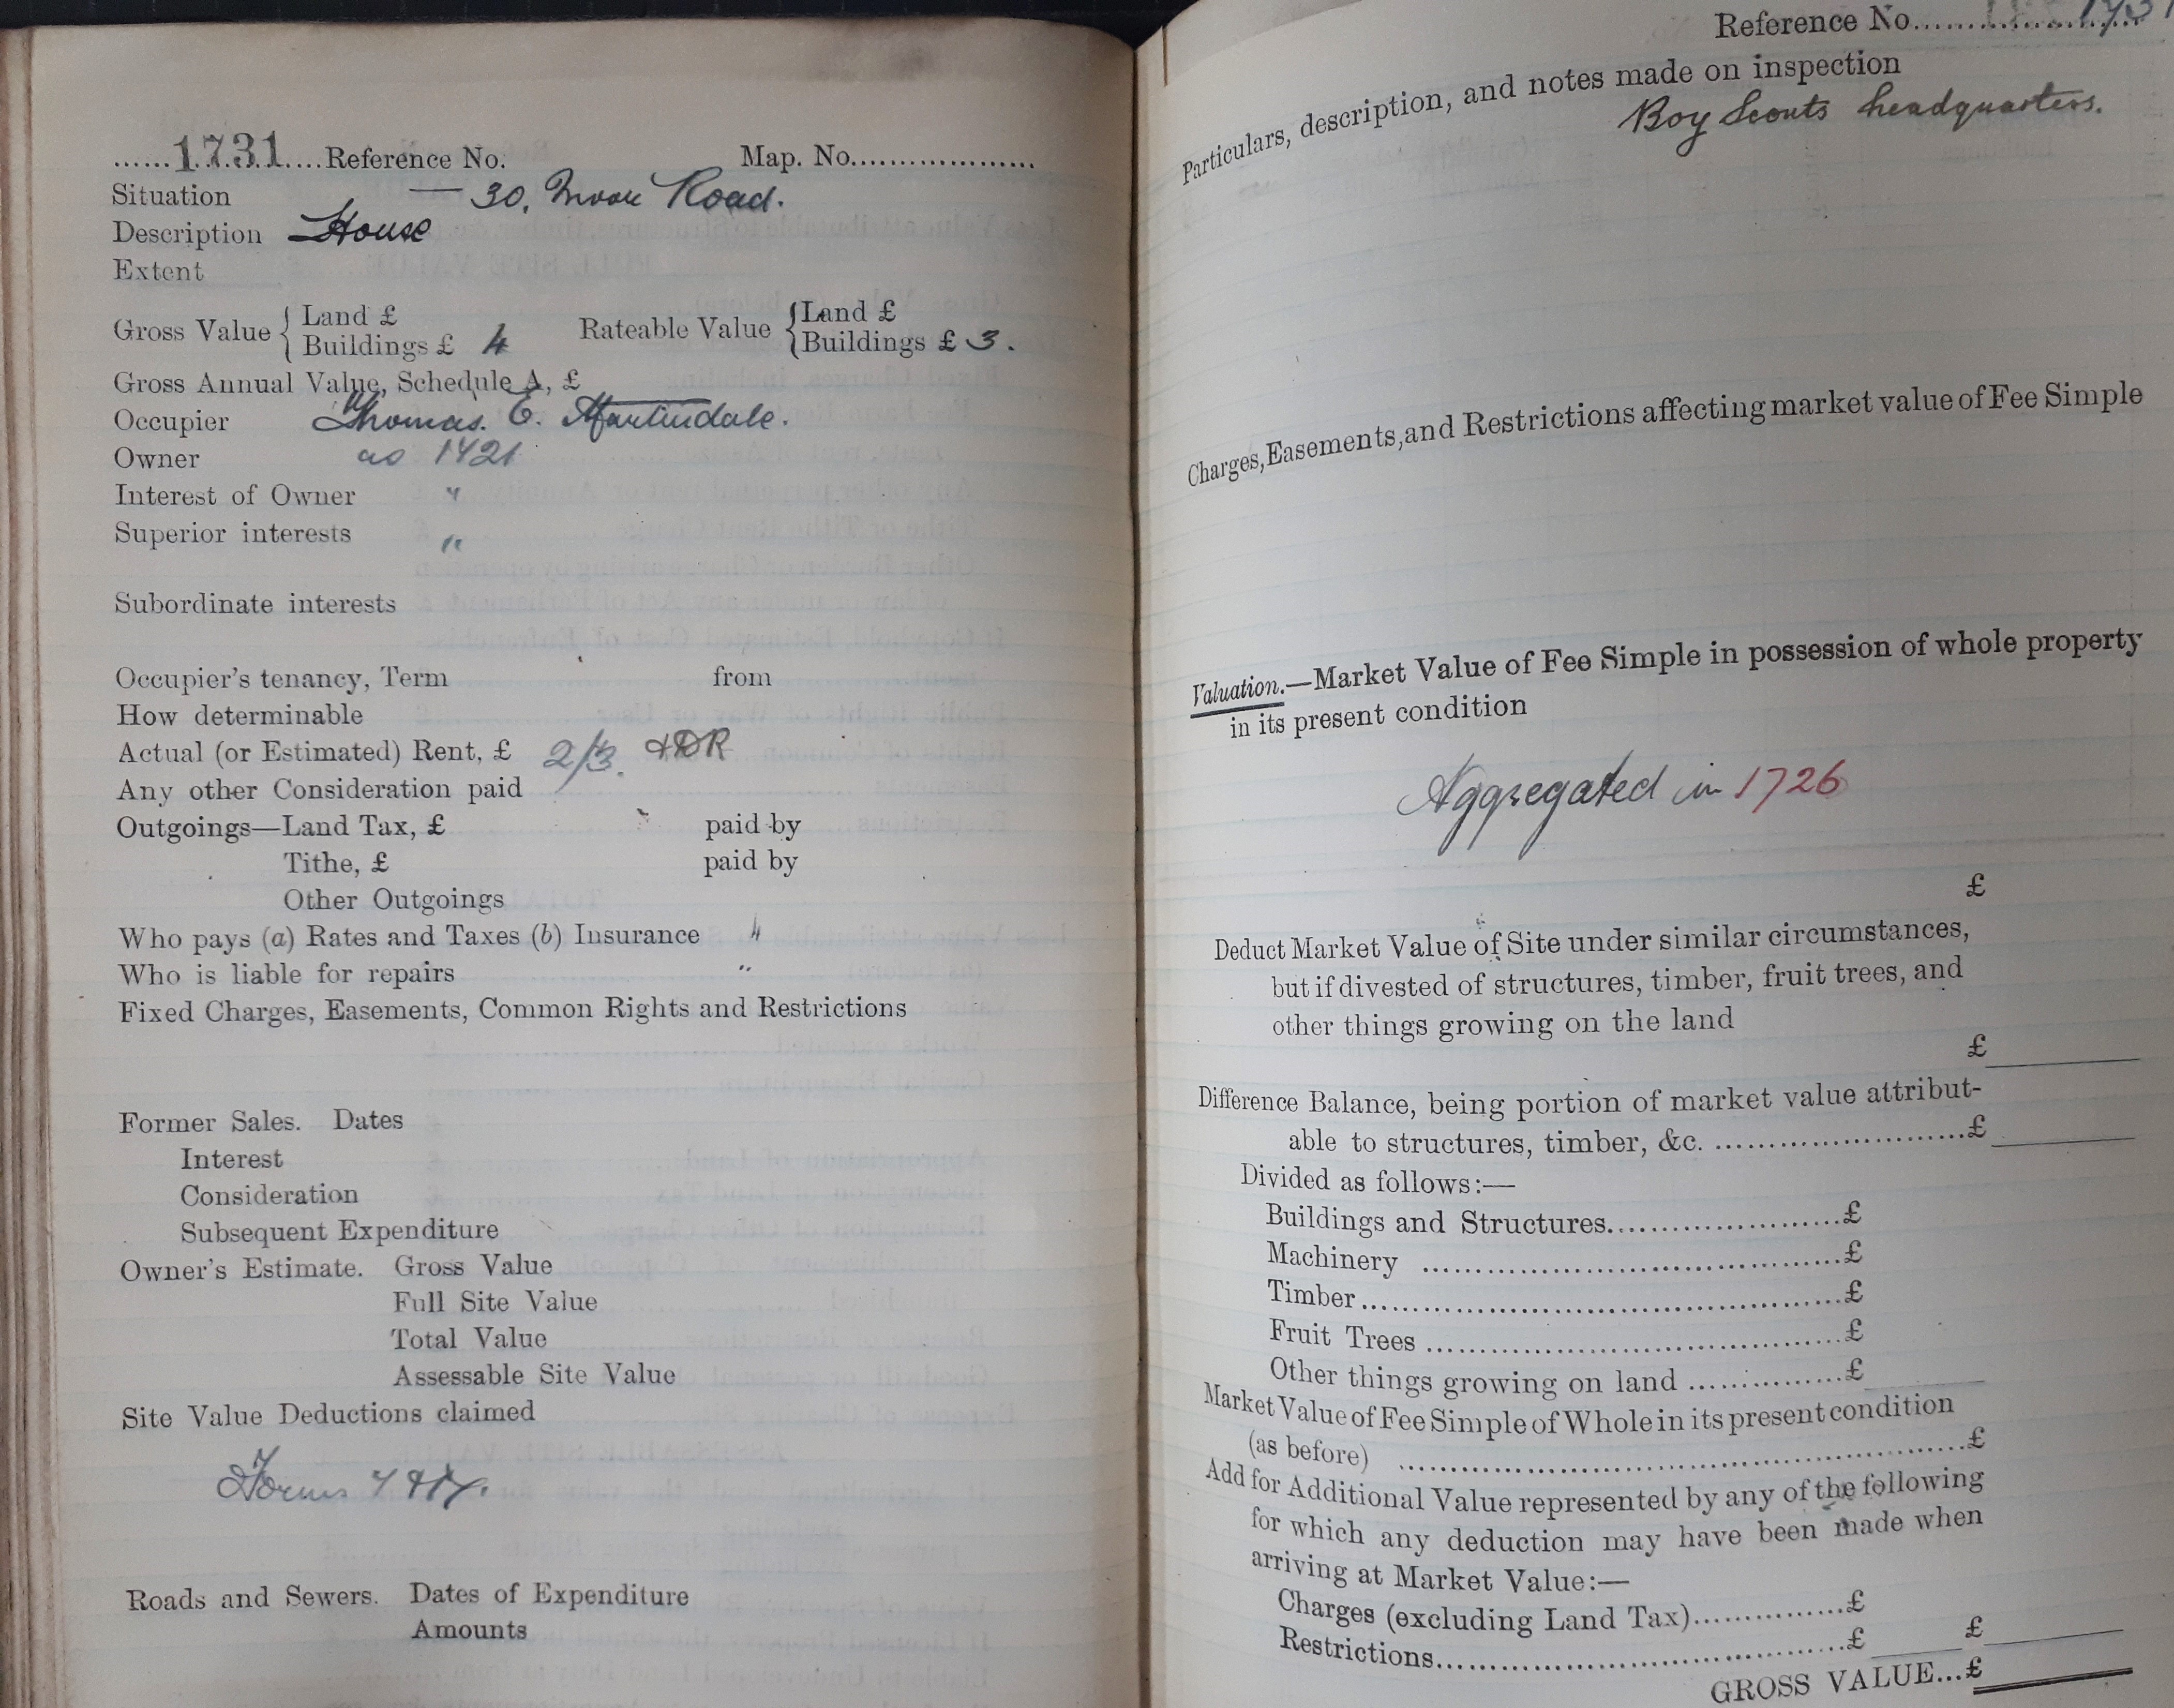 ......1731....Reference No. Map. No...................
Situation — 30, Moor Road.
Description House
Extent
Gross Value { Land £ Rateable Value { Land £
Buildings £ 4 Buildings £ 3.
Gross Annual Value, Schedule A, £
Occupier Thomas. E. Martindale.
Owner as 1421
Interest of Owner "
Superior interests "
Subordinate interests
Occupier's tenancy, Term from
How determinable
Actual (or Estimated) Rent, £ 2/3. + DR
Any other Consideration paid
Outgoings—Land Tax, £ paid by
Tithe, £ paid by
Other Outgoings
Who pays (a) Rates and Taxes (b) Insurance "
Who is liable for repairs "
Fixed Charges, Easements, Common Rights and Restrictions
Former Sales. Dates
Interest
Consideration
Subsequent Expenditure
Owner's Estimate. Gross Value
Full Site Value
Total Value
Assessable Site Value
Site Value Deductions claimed
Forms
Roads and Sewers. Dates of Expenditure
Amounts
Reference No.....................
Particulars, description, and notes made on inspection
Boy Scouts headquarters.
Charges, Easements, and Restrictions affecting market value of Fee Simple
Valuation.—Market Value of Fee Simple in possession of whole property
in its present condition
Aggregated in 1726
£
Deduct Market Value of Site under similar circumstances,
but if divested of structures, timber, fruit trees, and
other things growing on the land
£
Difference Balance, being portion of market value attribut-
able to structures, timber, &c. .........................£
Divided as follows:—
Buildings and Structures.......................£
Machinery .........................................£
Timber...............................................£
Fruit Trees .........................................£
Other things growing on land ...............£
Market Value of Fee Simple of Whole in its present condition
(as before) .......................................................£
Add for Additional Value represented by any of the following
for which any deduction may have been made when
arriving at Market Value:—
Charges (excluding Land Tax)...............£
Restrictions.........................................£ £
GROSS VALUE...£